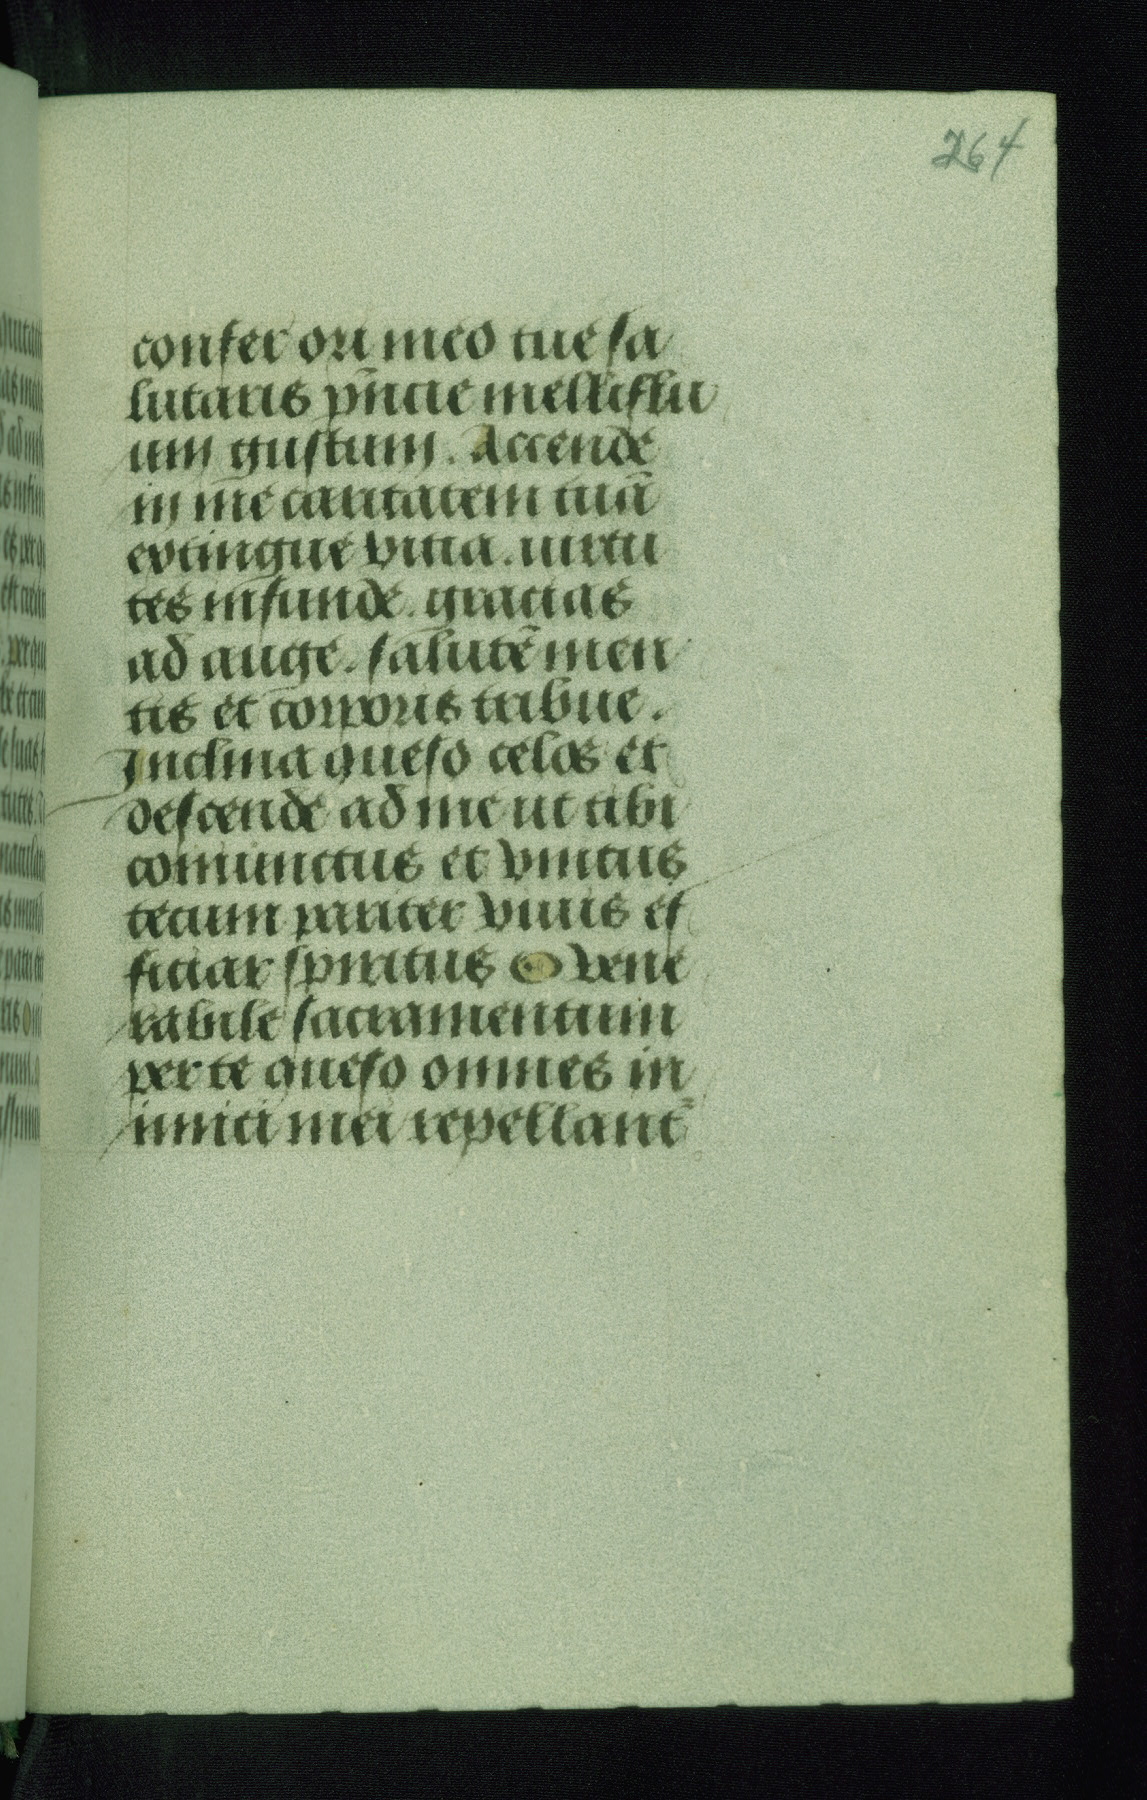 264
confer ori meo tue sa
lutaris p̄ncie melliflu
um gustum. Accende
in me caritatem tuā
extingue vitia. uirtu
tes infunde. gracias
ad auge. salutē men
tis et corporis tribue.
Inclina queso celos et
descende ad me ut tibi
coniunctus et vnitus
tecum pariter vnus ef
ficiar spiritus O vene
rabile sacramentum
per te queso omnes in
imici mei repellant᷑